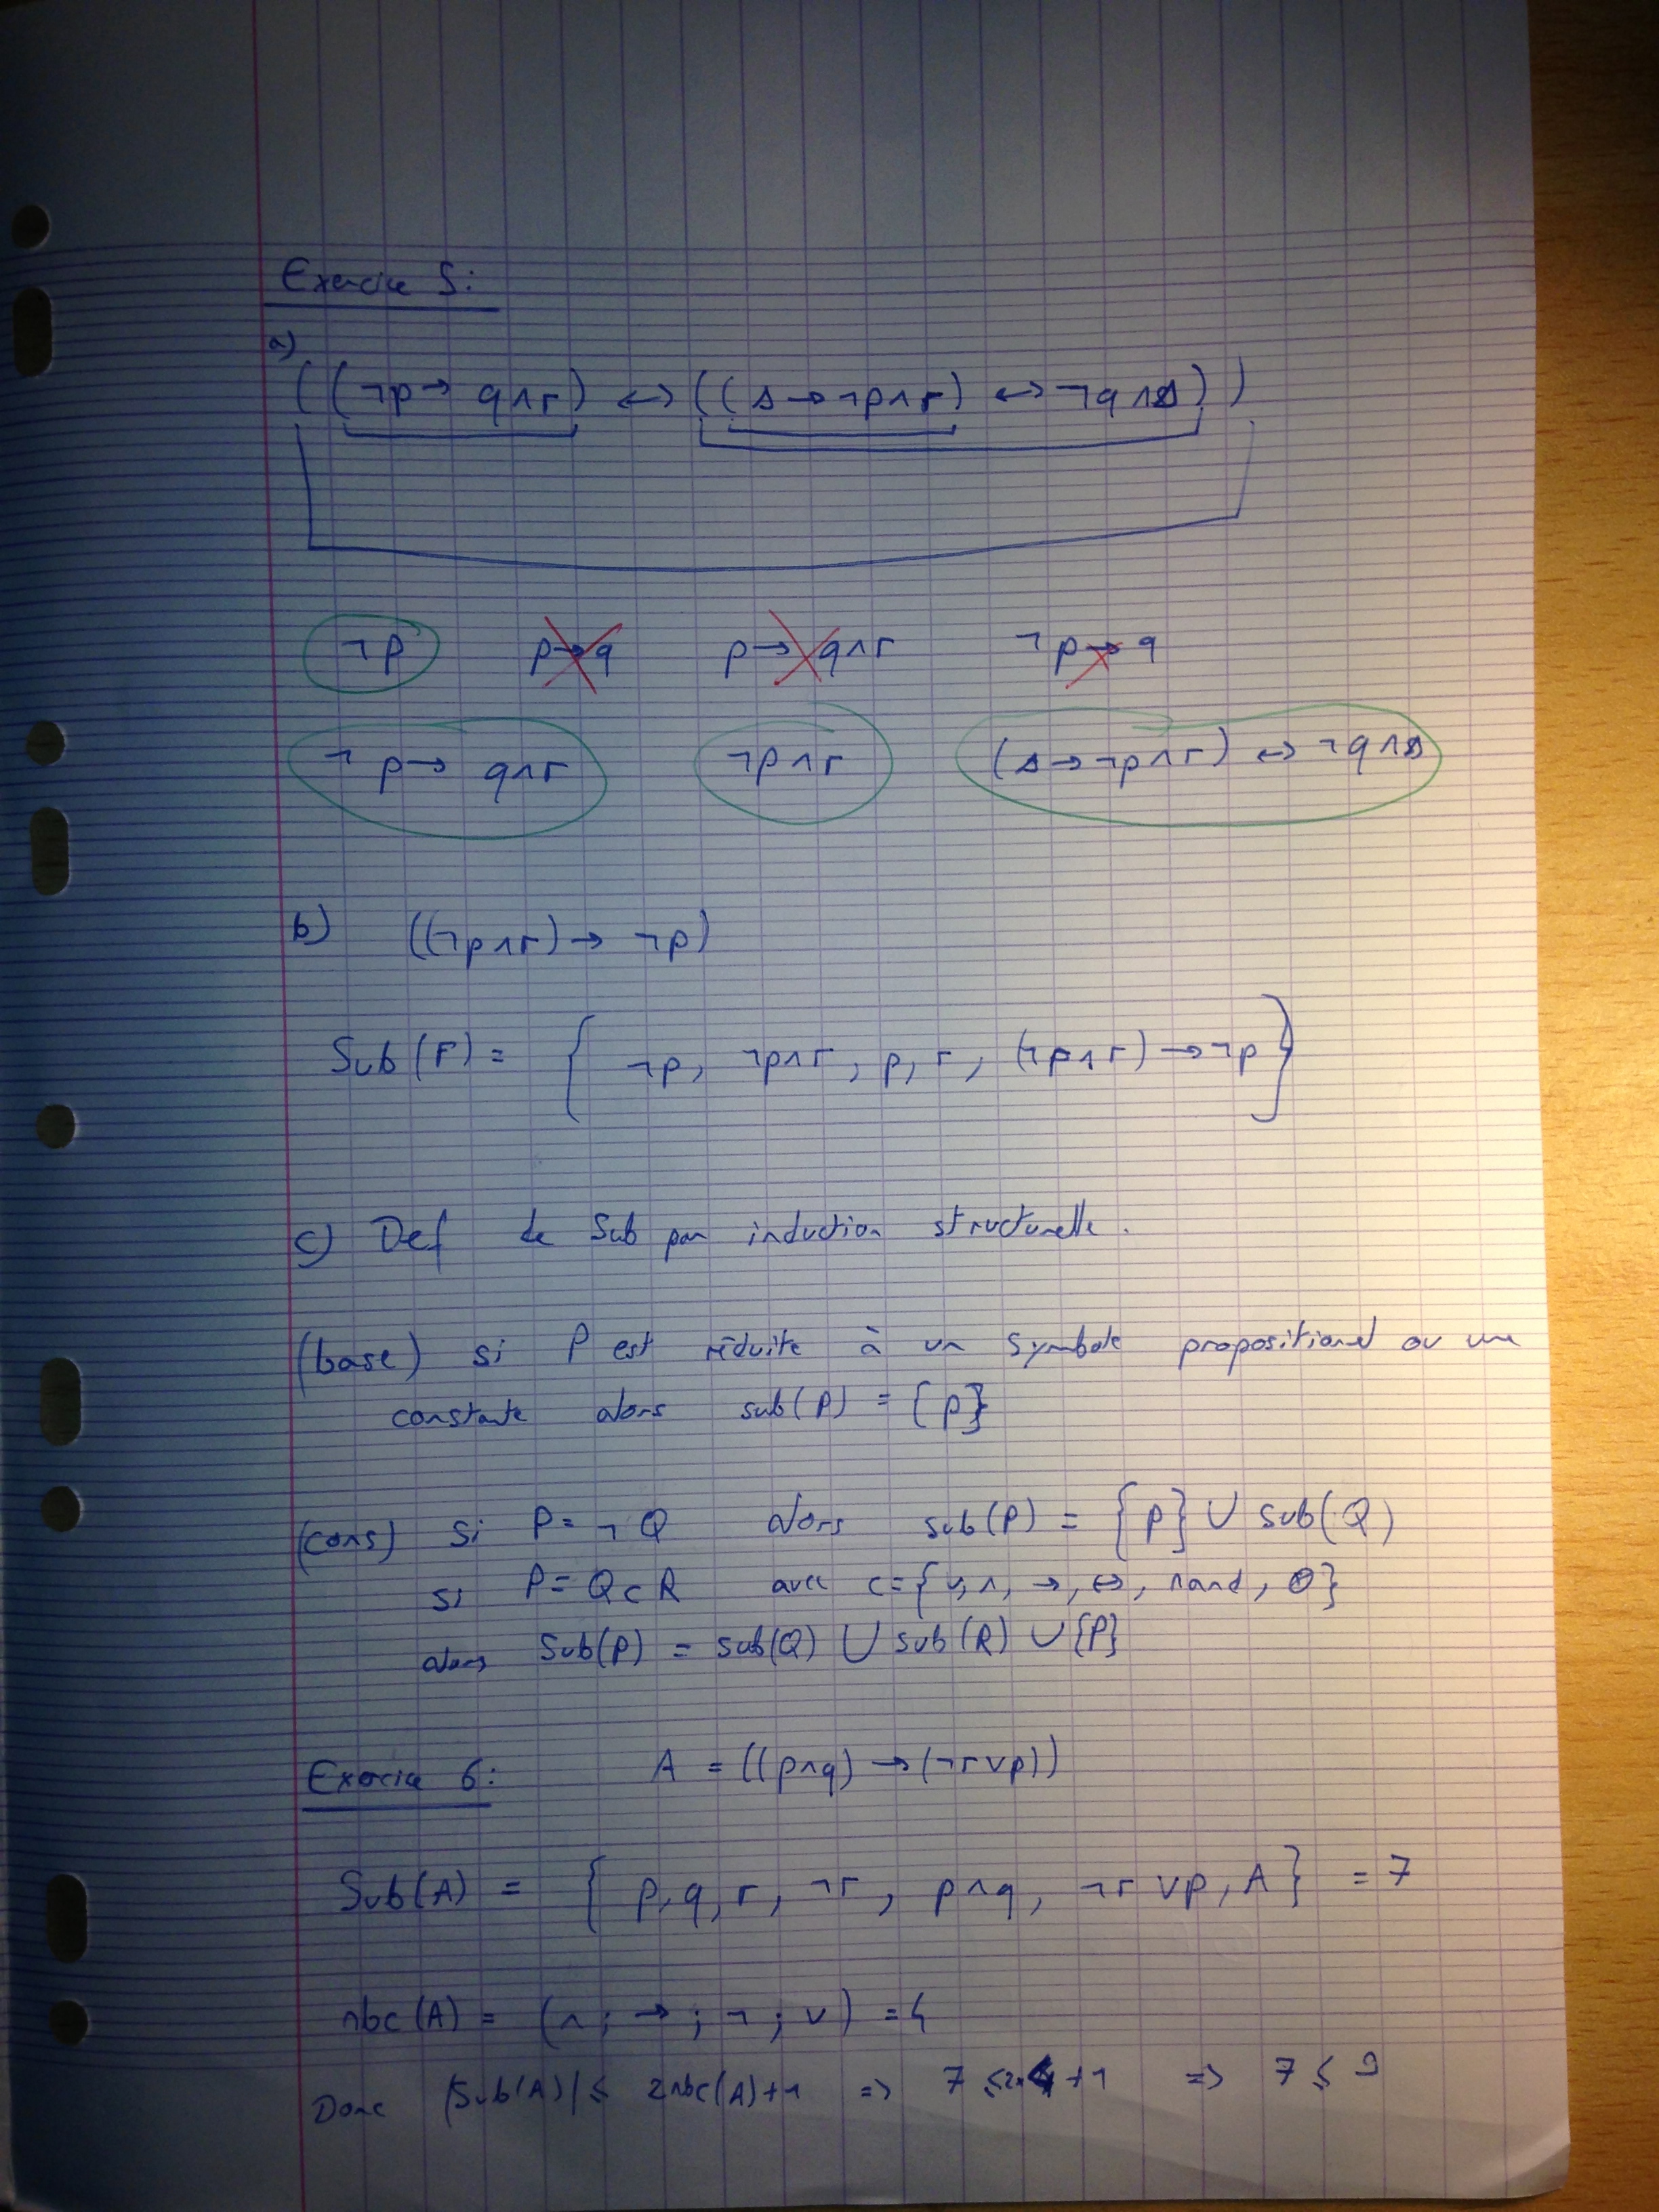 Exercice 5:
a)
((¬p → q∧r) ↔ ((s → ¬p∧r) ↔ ¬q∧s))
¬p p→q p→q∧r ¬p→q
¬p→ q∧r ¬p∧r (s→¬p∧r) ↔ ¬q∧s
b) ((¬p∧r) → ¬p)
Sub(F) = { ¬p, ¬p∧r, p, r, (¬p∧r) → ¬p }
c) Def de Sub par induction structurelle.
(base) si P est réduite à un symbole propositionel ou une
constante alors sub(P) = {P}
(cons) si P = ¬Q alors sub(P) = {P} ∪ sub(Q)
si P = Q c R avec c = {∨, ∧, →, ↔, nand, ⊕}
alors Sub(P) = sub(Q) ∪ sub(R) ∪ {P}
Exercice 6: A = ((p∧q) → (¬r∨p))
Sub(A) = { p, q, r, ¬r, p∧q, ¬r ∨p, A } = 7
nbc(A) = (∧ ; → ; ¬ ; ∨) = 4
Donc |Sub(A)| ≤ 2nbc(A)+1 => 7 ≤ 2×4+1 => 7 ≤ 9